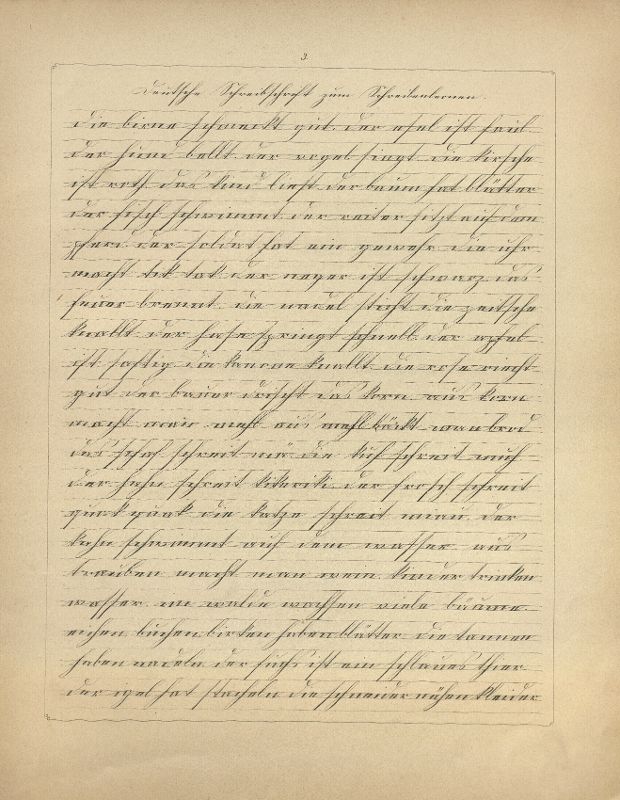 3.
Deutsche Schreibschrift zum Schreibenlernen.
die birne schmeckt gut. der esel ist faul.
der hund bellt. der vogel singt. die kirsche
ist roth. das kind liest. der baum hat blätter
der fisch schwimmt. der reiter sitzt auf dem
pferd. der soldat hat ein gewehr. die uhr
macht tik tak. der neger ist schwarz. das
feuer brennt. die nadel sticht. die peitsche
knallt. der hase springt schnell. der apfel
ist saftig. die kanone knallt. die rose riecht
gut. der bauer drischt das korn. aus korn
macht man mehl. aus mehl bäckt man brod.
das schaf schreit mä. die kuh schreit muh.
der hahn schreit kikeriki. der frosch schreit
quak quak. die katze schreit miau. der
kahn schwimmt auf dem wasser. aus
trauben macht man wein. kinder trinken
wasser. im walde wachsen viele bäume.
eichen buchen birken haben blätter. die tannen
haben nadeln. der fuchs ist ein schlaues thier.
der igel hat stacheln. die schneider nähen kleider